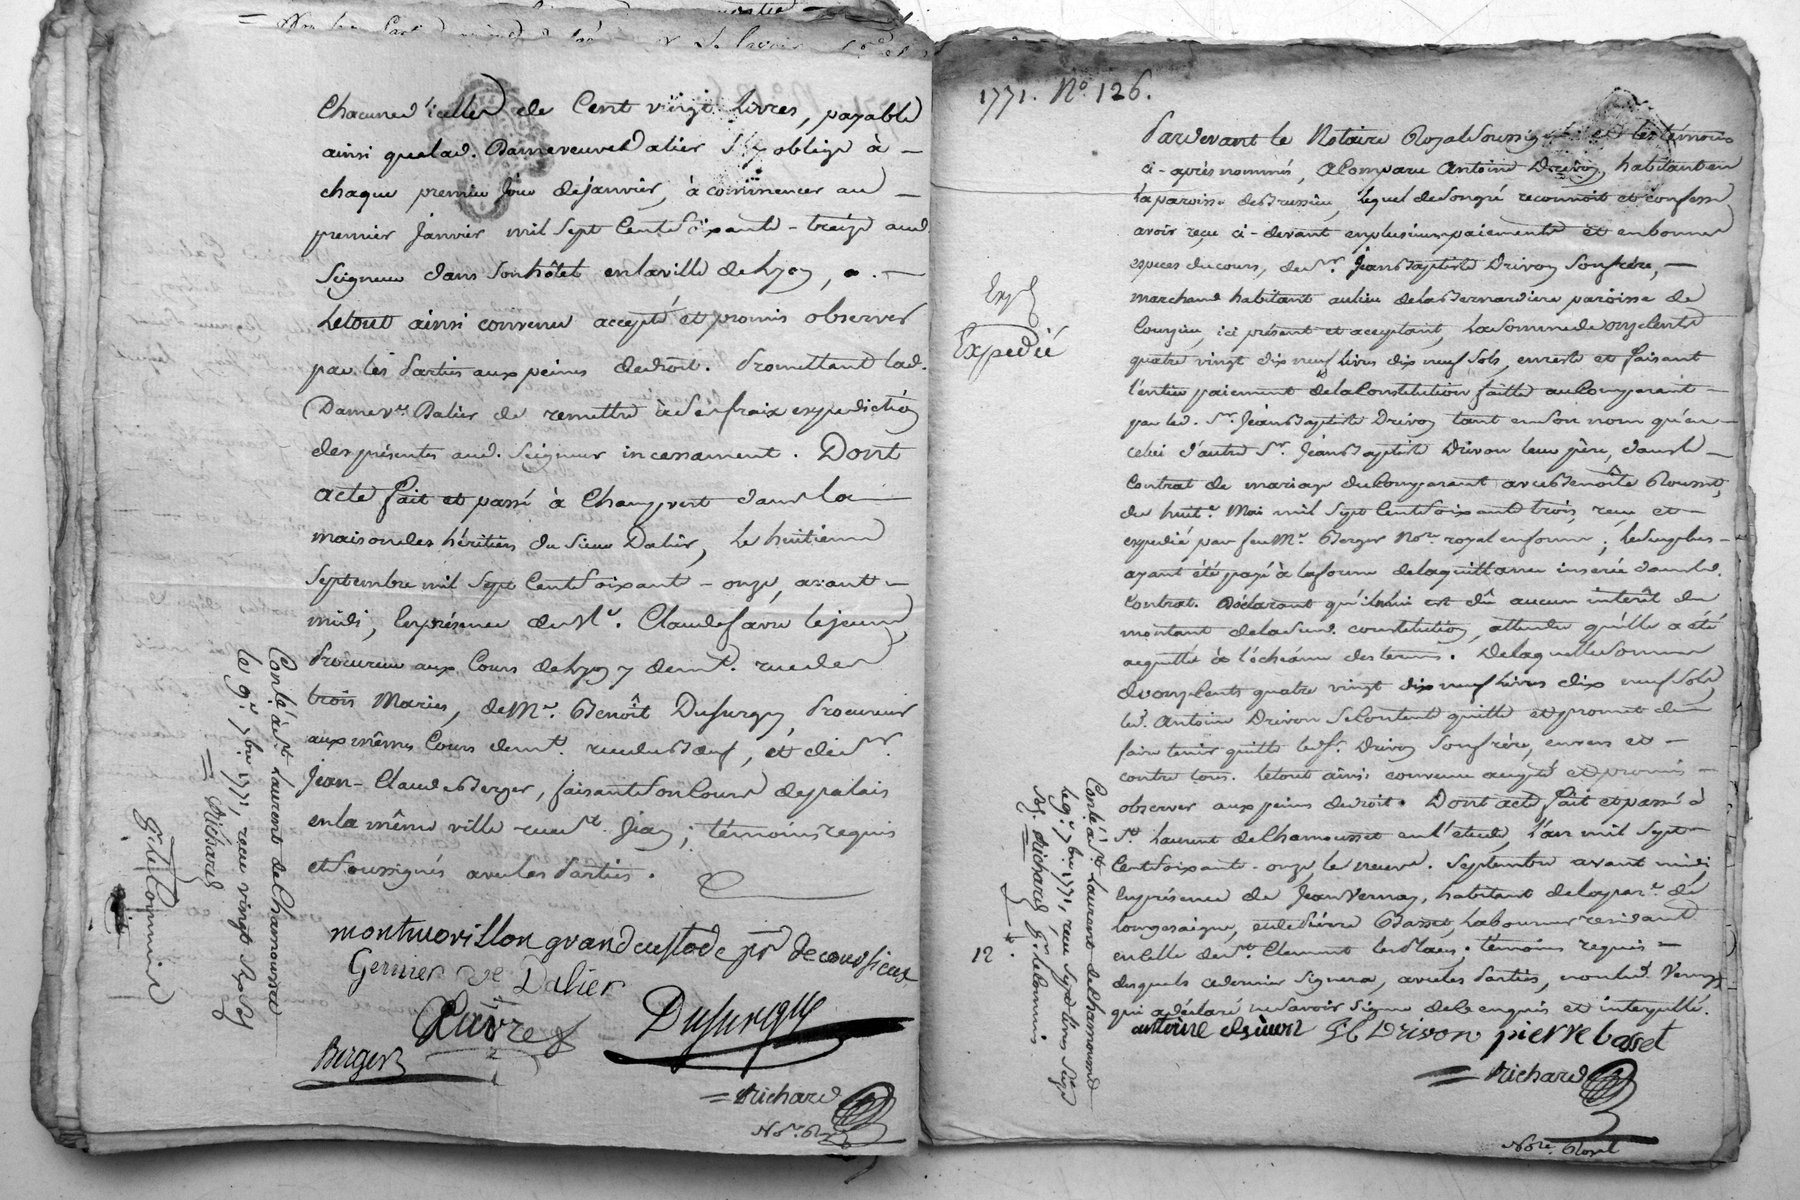 Chacune d'icelles de Cent vingt livres, payable
ainsi que lad. Dame veuve Dalier s'y oblige à -
chaque premier jour de janvier, à commencer au -
premier Janvier mil Sept Cent Soixante-treize aud.
Seigneur dans son hôtel en la ville de Lyon, -
Letout ainsi convenu accepté et promis observer
par les Parties aux peines de droit. Promettant lad.
Dame ve. Dalier de remettre à ses fraix expédiction
des présentes aud. Seigneur incessament. Dont
acte fait et passé à Champvert dans la
maison des héritiers du Sieur Dalier, le huitieme
Septembre mil Sept Cent Soixante-onze, avant-
midi, En présence de Me. Claude favre lejeune,
Procureur aux Cours de Lyon y demt. rue des
trois Maries, de Me. Benoît Dusurgey, Procureur
aux mêmes Cours demt. rue du Boeuf, et de Sr.
Jean-Claude Berger, faisant Son Cours de palais
en la même ville rue St. Jean; témoins requis
et Soussignés avec les Parties.
montmorillon grand custode de
Gernier ve Dalier
Favre
Dusurgey
Berger
= Richard
Nore. Royal
Conlé à St. Laurent de Chamousset
le 9e. 7bre. 1771, reçu vingt
= Richard
Gr. le Commis
1771. No. 126.
Pardevant le Notaire Royal Soussigné et les témoins
ci-après nommés, a Comparu Antoine Drivon, habitant en
la paroisse de Brussieu, lequel de Son gré reconnoit et confesse
avoir reçu ci-devant en plusieurs paiements et en bonnes
especes du cours, de Sr. Jean Baptiste Drivon Son frère, -
marchand habitant au lieu de la Bernardiere paroisse de
Courzieu, ici présent et acceptant, La Somme de onze Cents
quatre vingt dix neuf livres dix neuf Sols, en reste et faisant
l'entier paiement de la Constitution faitte au Comparant -
par led. Sr. Jean Baptiste Drivon tant en Son nom qu'en -
celui d'autre Sr. Jean Baptiste Drivon leur père, dans le -
Contrat de mariage du Comparant avec Benoîte Rousset,
du huite. Mai mil Sept Cent Soixante trois, reçu et -
expedié par feu Me. Berger Nore. royal en forme; le Surplus -
ayant été payé à la forme de la quittance inserée dans led.
Contrat. Déclarant qu'il ne lui est dû aucun intérêt du
montant de la Susd. constitution, attendu qu'elle a été
acquitté à l'échéance des termes. De laquelle Somme
d'onze Cents quatre vingt dix neuf livres dix neuf Sols,
led. Antoine Drivon Se Contente quitte et promet de
faire tenir quitte led. Sr. Drivon Son frère, envers et -
contre tous. Letout ainsi convenu accepté et promis -
observer aux peines de droit. Dont acte fait et passé à
St. Laurent de Chamousset en l'etude, L'an mil Sept
Cent Soixante-onze, le neuve. Septembre avant midi,
En présence de Jean Vernay, habitant de la pare. de
Longesaigne, et de Pierre Basset, Laboureur residant
en celle de St. Clement les Places; témoins requis =
desquels ce dernier Signera, avec les Parties, non led. Vernay
qui a déclaré ne Savoir Signer de ce enquis et interpellé.
antoine drivon JB Drivon pierre basset
= Richard
Nore. Royal
Exp
Expedié
12 s.
Conlé à St. Laurent de Chamousset
le 9e. 7bre. 1771, reçu Sept livres
Sé. Richard Gr. le Commis